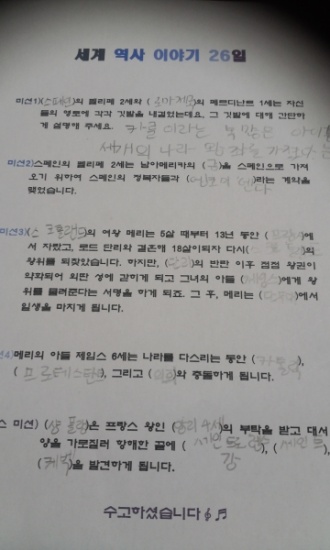 세계 역사 이야기 26일
미션1)(스페인)의 펠리페 2세와 ( )의 페르디난트 1세는 자신
들의 영토에 각각 깃발을 내걸었는데요, 그 깃발에 대해 간단하
게 설명해 주세요. 카를 이라는 욕 많은 아이
세개의 나라 땅
미션2)스페인의 펠리페 2세는 남아메리카의 (금)을 스페인으로 가져
오기 위하여 스페인의 정복자들과 ( )라는 계약을
맺었습니다.
미션3)(스코틀랜드)의 여왕 메리는 5살 때부터 13년 동안 ( )에
서 자랐고, 로드 단리와 결혼해 18살이되자 다시( )의
왕위를 되찾았습니다. 하지만, (단리)의 반란 이후 점점 왕권이
약화되어 외딴 성에 갇히게 되고 그녀의 아들 (제임스)에게 왕
위를 물려준다는 서명을 하게 되죠. 그 후, 메리는 ( )에서
일생을 마치게 됩니다.
4)메리의 아들 제임스 6세는 나라를 다스리는 동안 (카톨릭),
(프로테스탄트), 그리고 (의회)와 충돌하게 됩니다.
스 미션) (샹플랭)은 프랑스 왕인 (앙리 4세)의 부탁을 받고 대서
양을 가로질러 항해한 끝에 (세인트로렌스 강), (세인트
(퀘벡)을 발견하게 됩니다.
수고하셨습니다